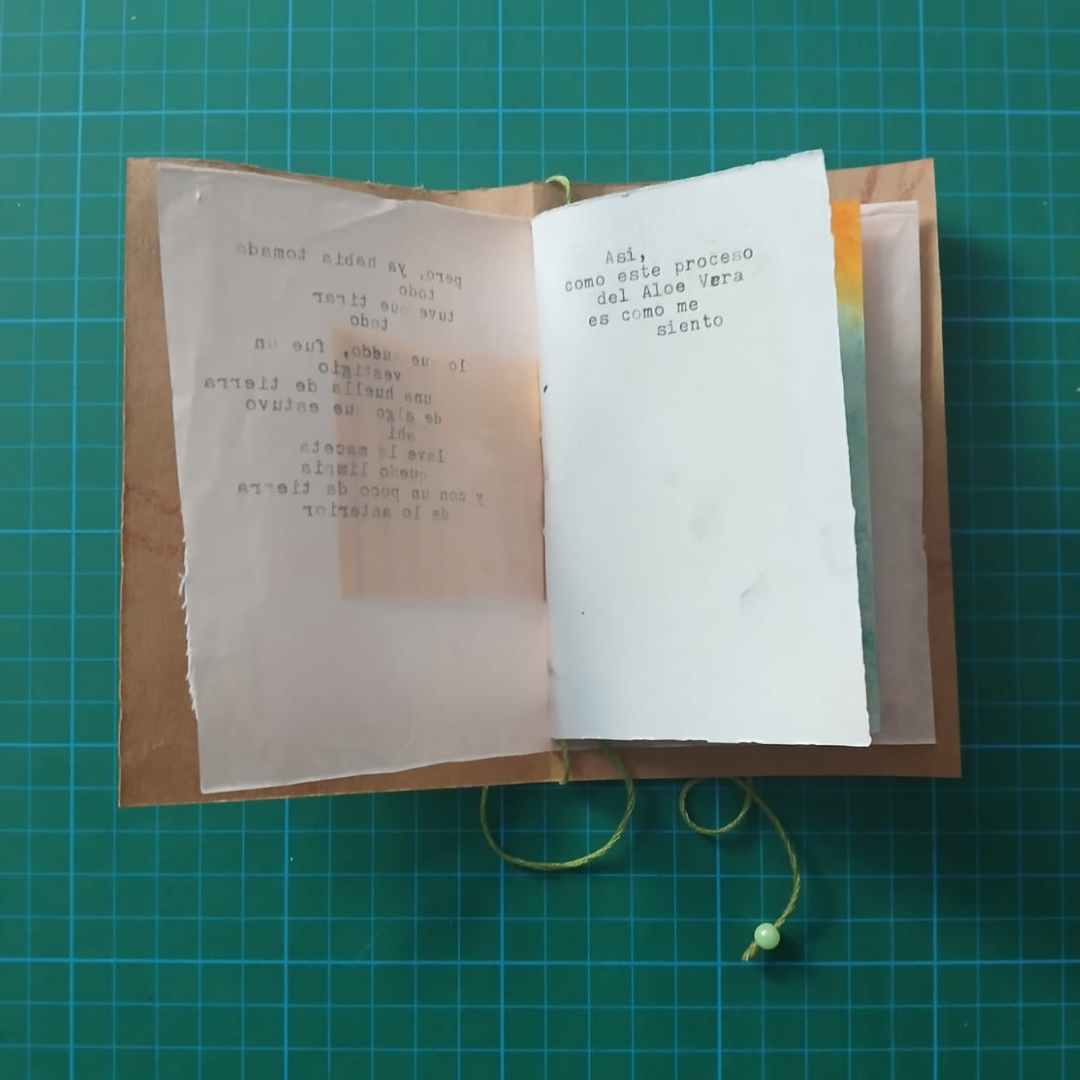 pero, ya habia tomado
todo
tuve que tirar
todo
lo que quedo, fue un
vestigio
una huella de tierra
de algo que estuvo
ahi
lave la maceta
quedo limpia
y con un poco de tierra
de lo anterior
Asi,
como este proceso
del Aloe Vera
es como me
siento